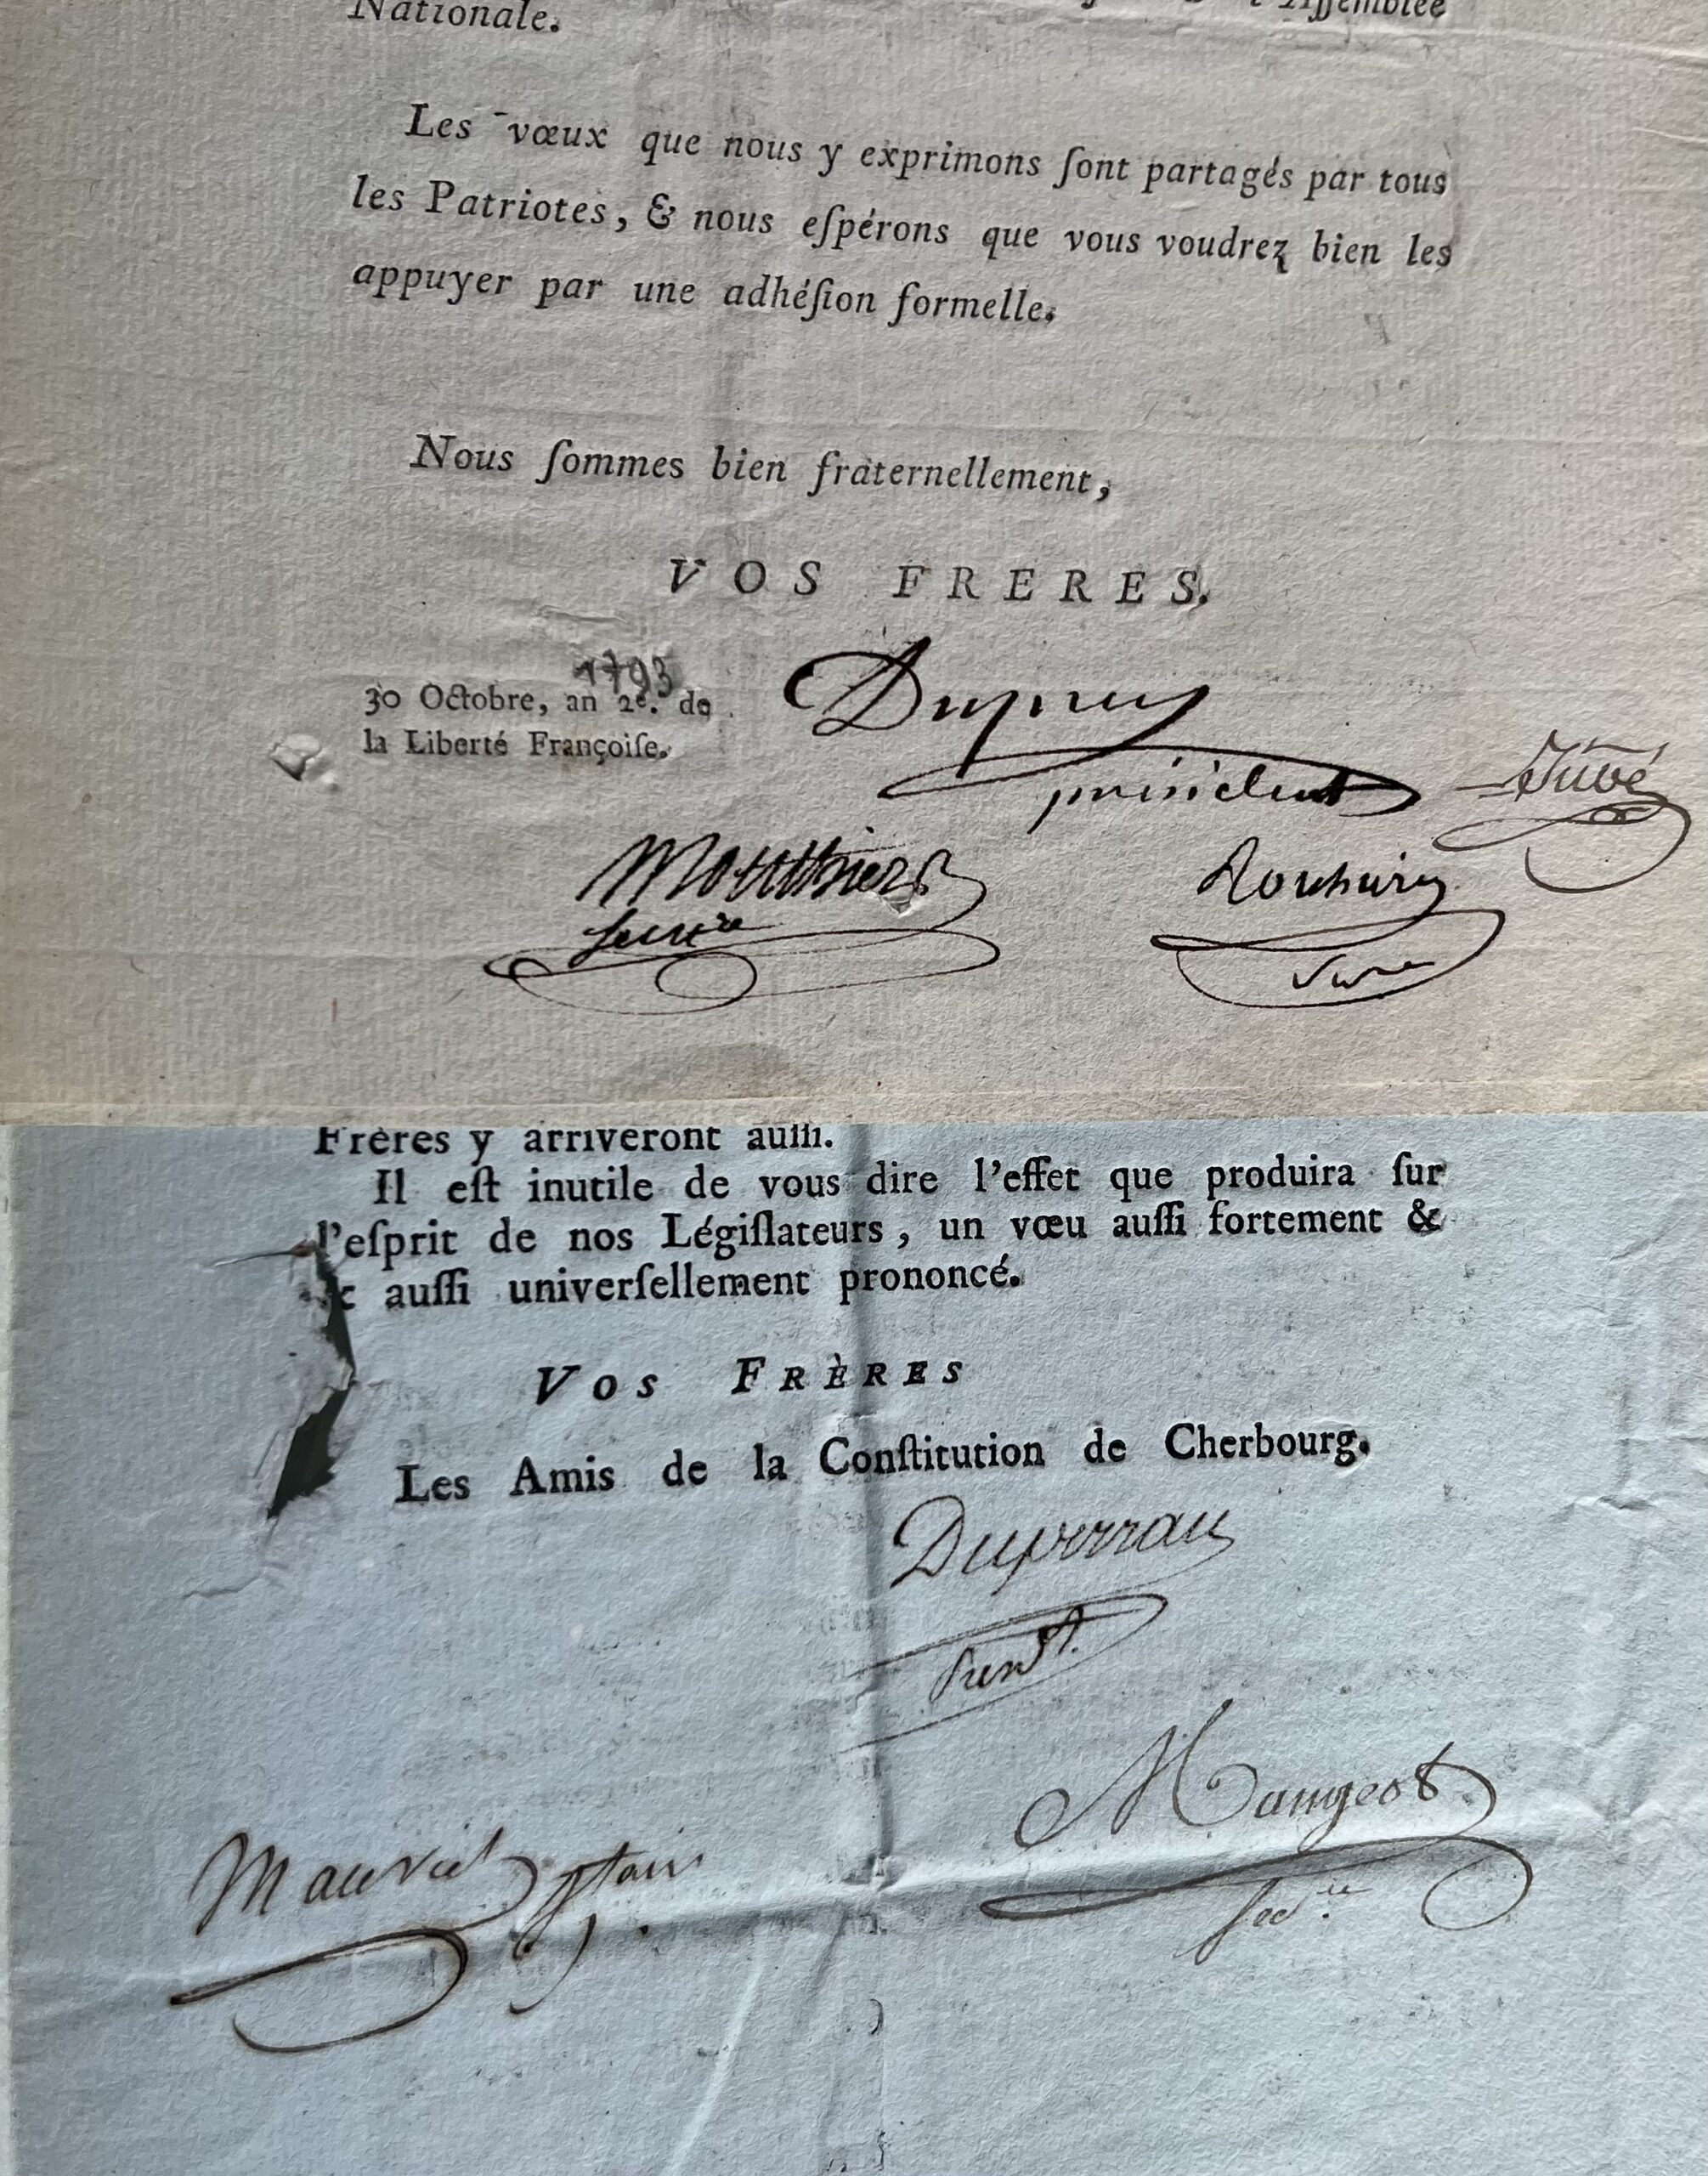 Nationale. l'Assemblée
Les vœux que nous y exprimons ſont partagés par tous
les Patriotes, & nous eſpérons que vous voudrez bien les
appuyer par une adhéſion formelle.
Nous ſommes bien fraternellement,
VOS FRERES.
1793
30 Octobre, an 2e. de
la Liberté Françoiſe.
Dupuy
président
Juvé
Mouthier
Secre
Frères y arriveront auſſi.
Il eſt inutile de vous dire l'effet que produira ſur
l'eſprit de nos Légiſlateurs, un vœu auſſi fortement &
& auſſi univerſellement prononcé.
Vos Frères
Les Amis de la Conſtitution de Cherbourg.
Duperrau
Mangeot
secre
Mauriel